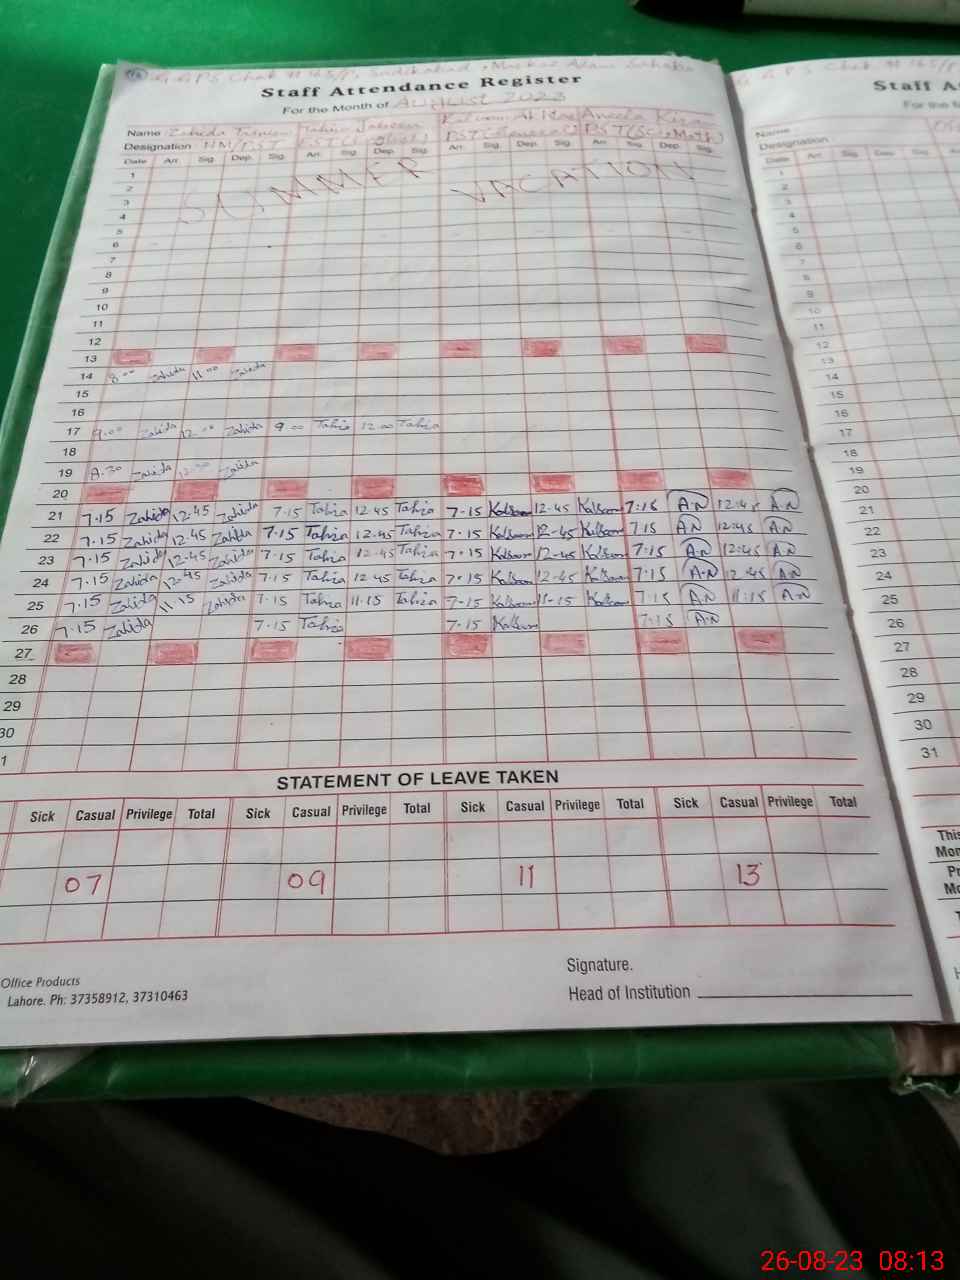 G.G.P.S. Chak # 165/P, Sadikabad, Markaz Adam Sahaba
Staff Attendance Register
For the Month of AUGUST 2023
Name Zahida Tahira Jabeen Kalsoom Aneela Kiran
Designation PST PST PST (General) PST (Sci-Math)
Date Arr. Sig. Dep. Sig. Arr. Sig. Dep. Sig. Arr. Sig. Dep. Sig. Arr. Sig. Dep. Sig.
1
2 SUMMER VACATION
3
4
5
6
7
8
9
10
11
12
13
14 8.00 Zahida 11.00 Zahida
15
16
17 9.00 Zahida 12.00 Zahida 9.00 Tahira 12.00 Tahira
18
19 8.30 Zahida Zahida
20
21 7.15 Zahida 12.45 Zahida 7.15 Tahira 12.45 Tahira 7-15 Kalsoom 12-45 Kalsoom 7:15 A.N 12:45 A.N
22 7.15 Zahida 12.45 Zahida 7.15 Tahira 12.45 Tahira 7.15 Kalsoom 12-45 Kalsoom 7:15 A.N 12:45 A.N
23 7.15 Zahida 12.45 Zahida 7.15 Tahira 12.45 Tahira 7.15 Kalsoom 12-45 Kalsoom 7:15 A.N 12:45 A.N
24 7.15 Zahida 12.45 Zahida 7.15 Tahira 12.45 Tahira 7.15 Kalsoom 12-45 Kalsoom 7:15 A.N 12:45 A.N
25 7.15 Zahida 11.15 Zahida 7.15 Tahira 11.15 Tahira 7-15 Kalsoom 11-15 Kalsoom 7:15 A.N 11:15 A.N
26 7.15 Zahida 7.15 Tahira 7.15 Kalsoom 7:15 A.N
27
28
29
30
1
STATEMENT OF LEAVE TAKEN
Sick Casual Privilege Total Sick Casual Privilege Total Sick Casual Privilege Total Sick Casual Privilege Total
07 09 11 13
Signature.
Head of Institution
Office Products
Lahore. Ph: 37358912, 37310463
G.G.P.S. Chak # 165/P
Staff A
For the
Name
Designation
Date Arr. Sig. Dep. Sig.
1
2
3
4
5
6
7
8
9
10
11
12
13
14
15
16
17
18
19
20
21
22
23
24
25
26
27
28
29
30
31
This
Mon
Pr
Mo
26-08-23 08:13